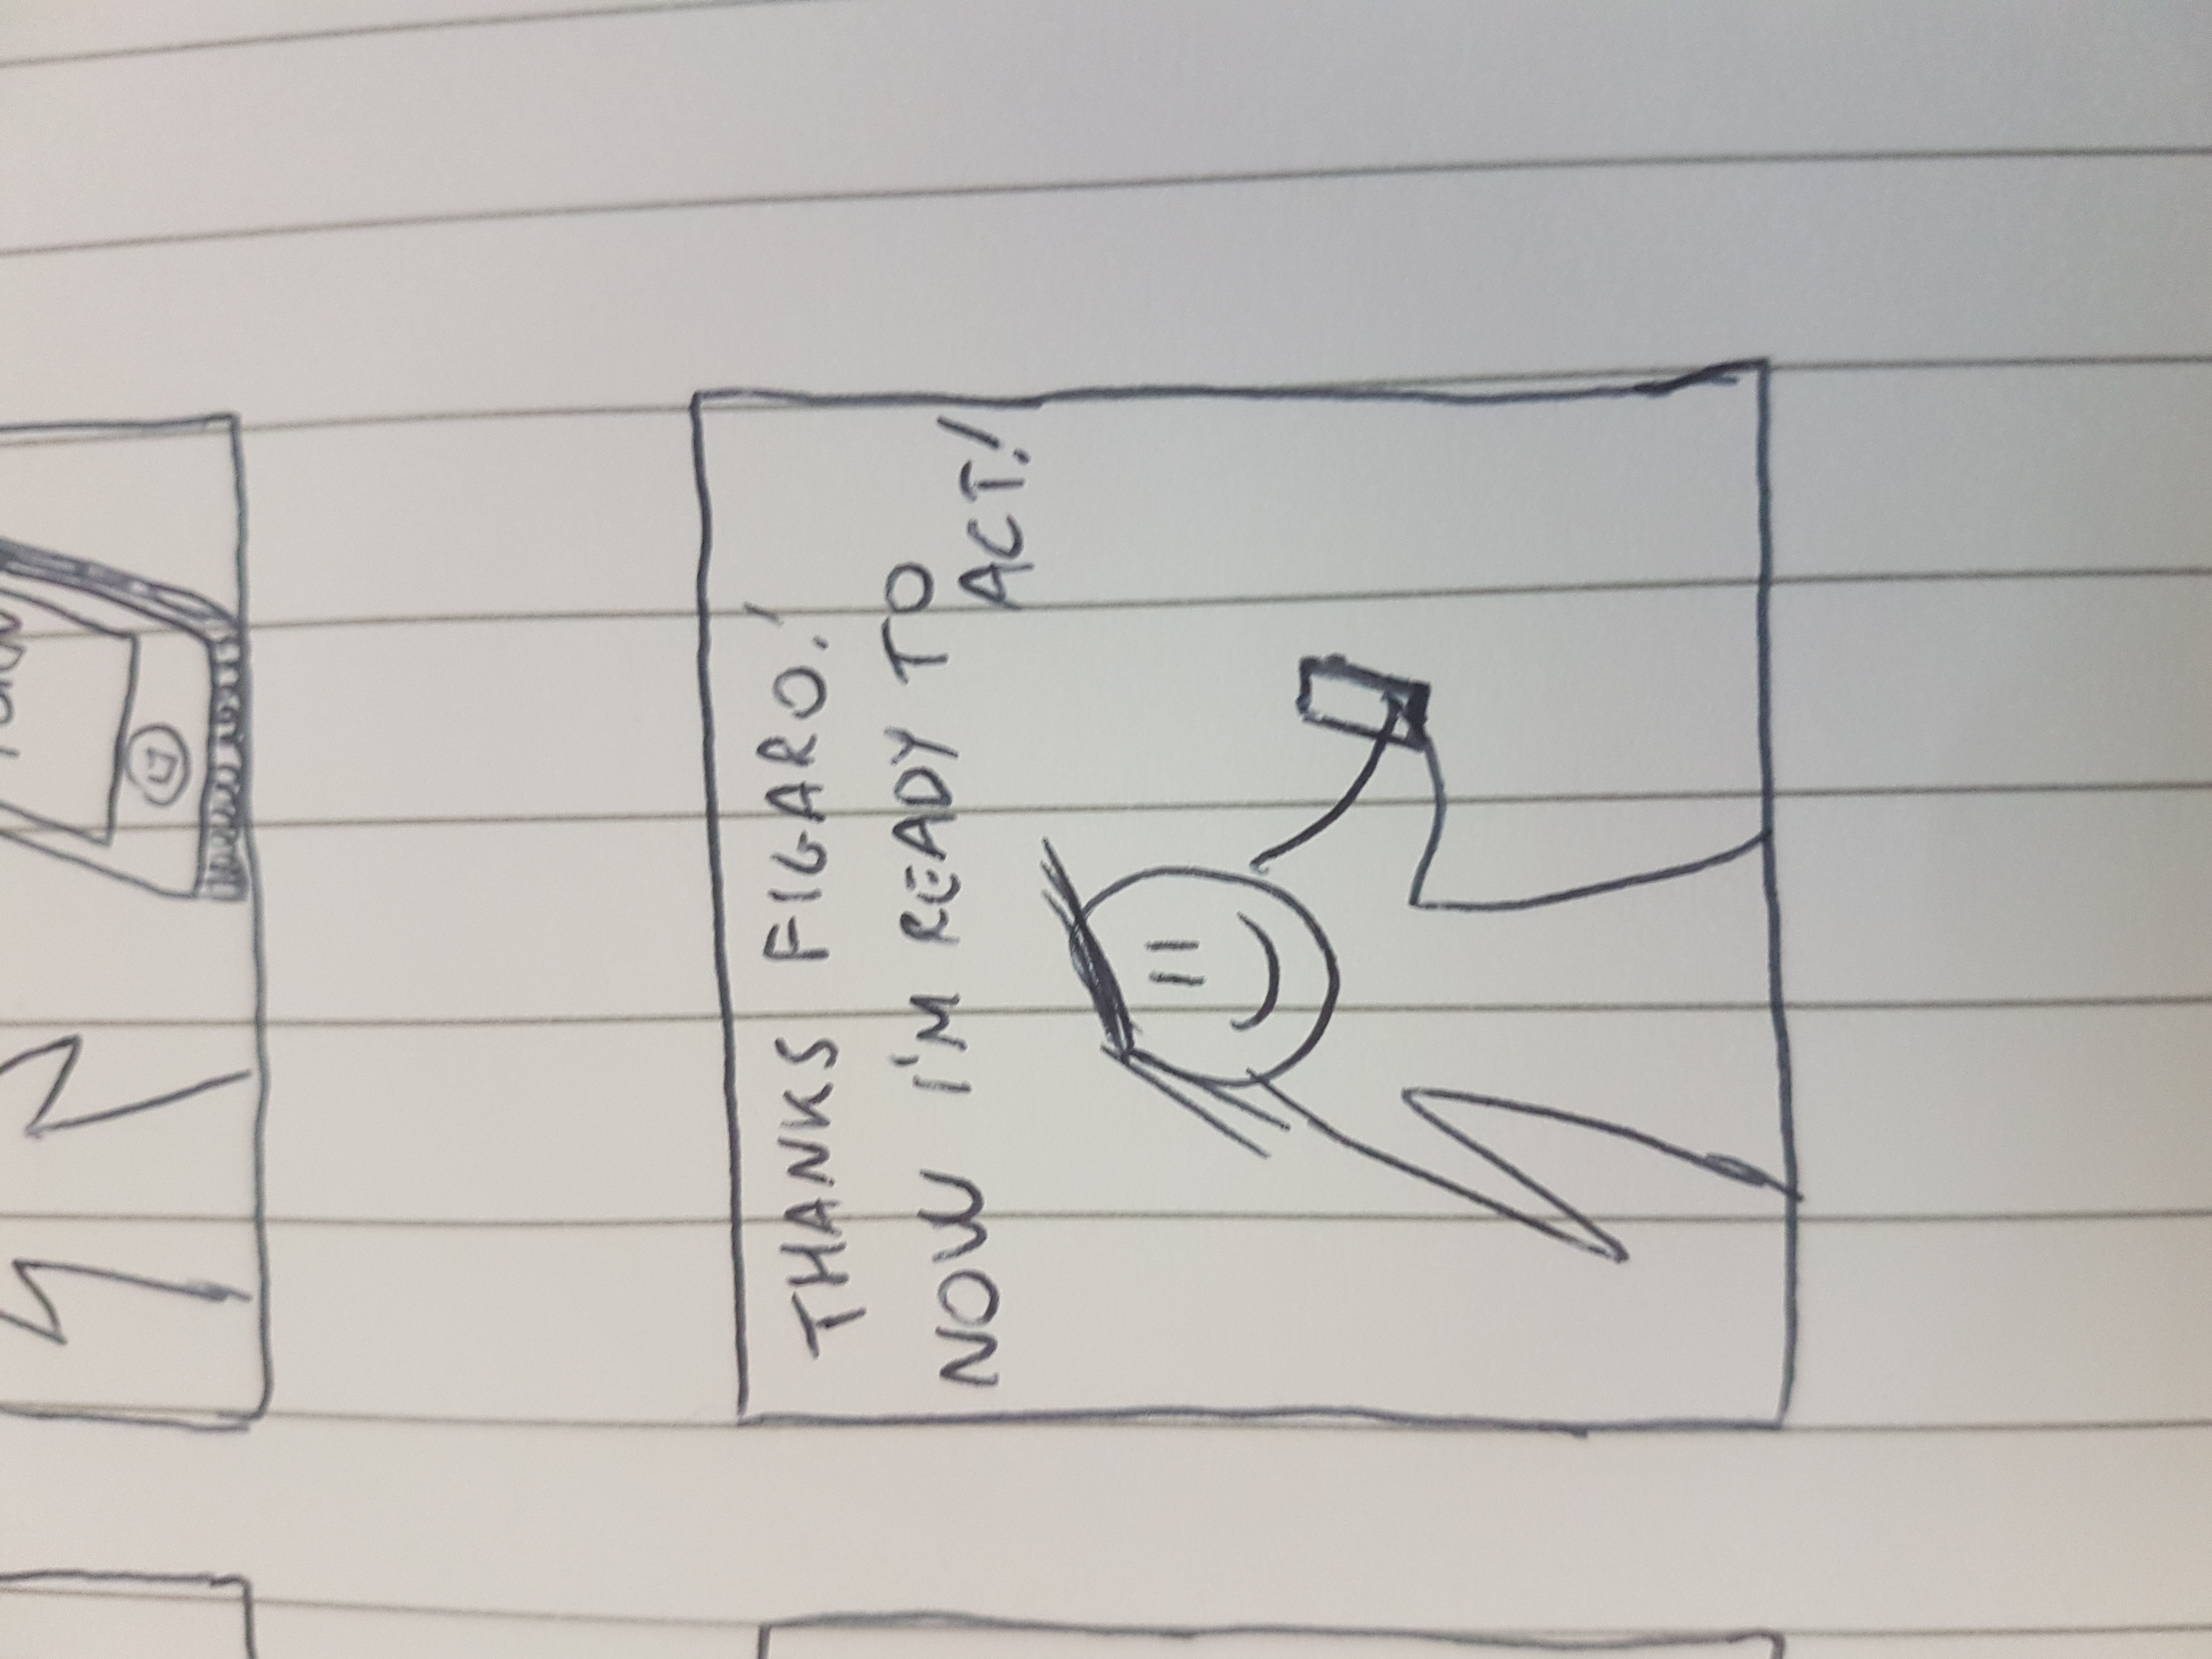 THANKS FIGARO!
NOW I'M READY TO
ACT!